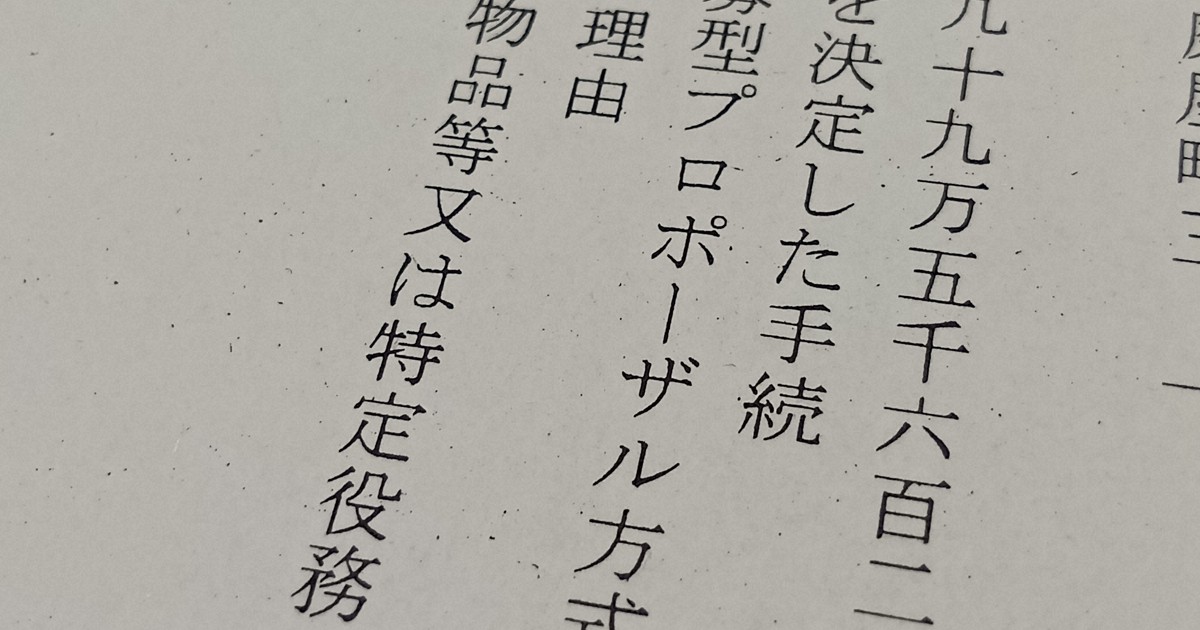 町三一
九十九万五千六百二
を決定した手続
型プロポーザル方式
理由
物品等又は特定役務